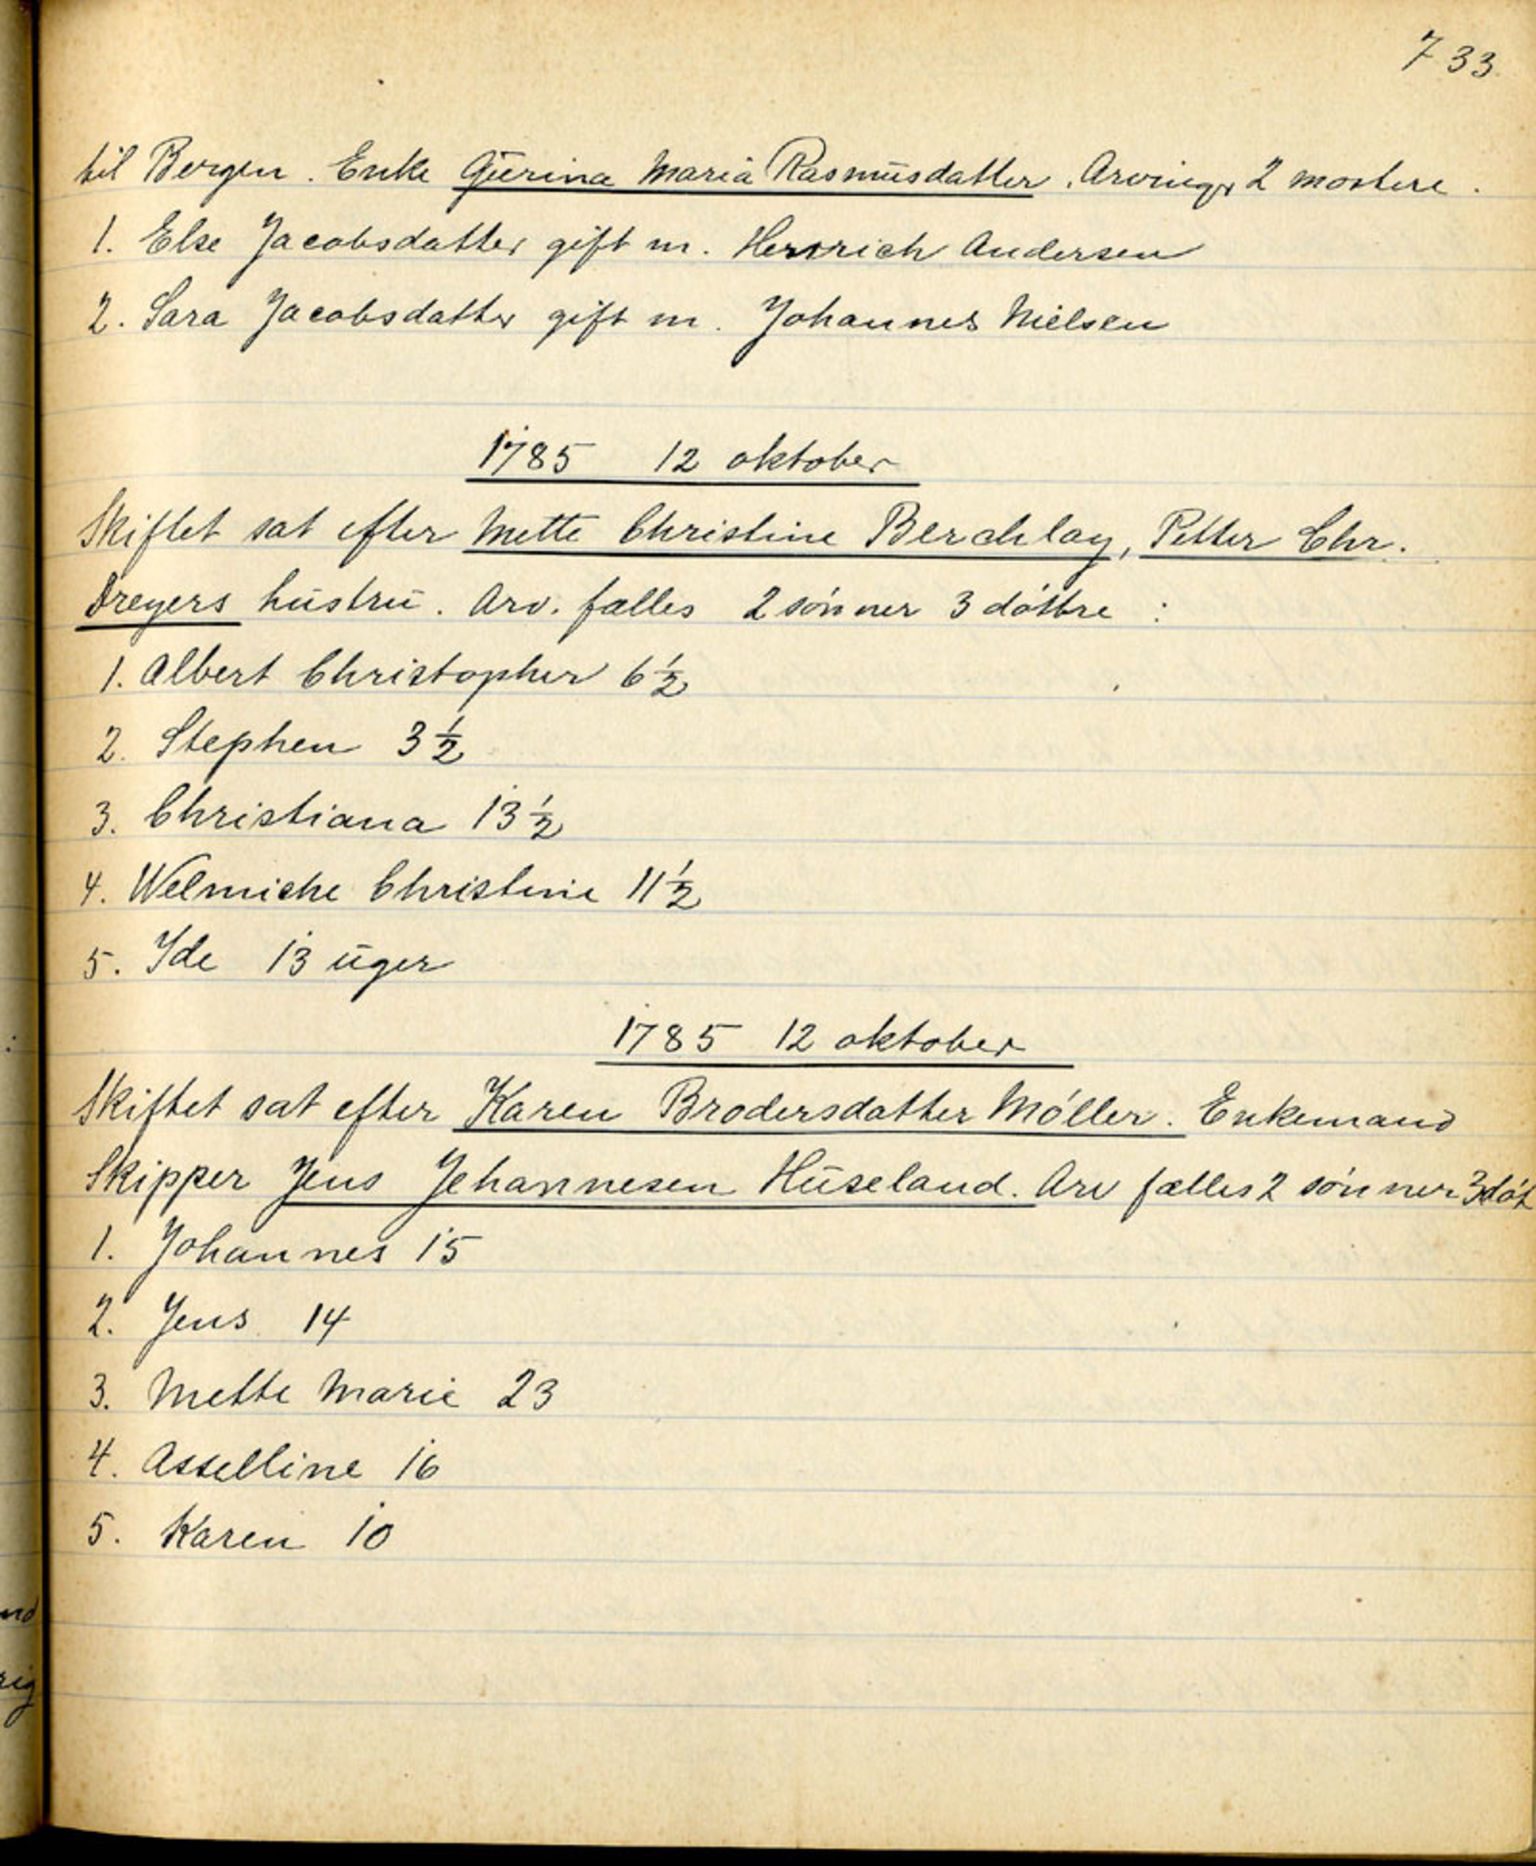 733.
til Bergen. Enke Gurina Maria Rasmusdatter. Arvinger 2 mostere.
1. Else Jacobsdatter gift m. Henrich Andersen
2. Sara Jacobsdatter gift m. Johannes Nielsen
1785 12 oktober
Skiftet sat efter Mette Christine Berchlay, Petter Chr.
Dreyers hustru. Arv. fælles 2 sónner 3 dóttre :
1. Albert Christopher 6½
2. Stephen 3½
3. Christiana 13½
4. Welmiche Christine 11½
5. Ide 13 uger
1785 12 oktober
Skiftet sat efter Karen Brodersdatter Móller. Enkemand
Skipper Jens Jehannesen Huseland. Arv fælles 2 sónner 3 dót
1. Johannes 15
2. Jens 14
3. Mette Marie 23
4. Asselline 16
5. Karen 10
nd
rig